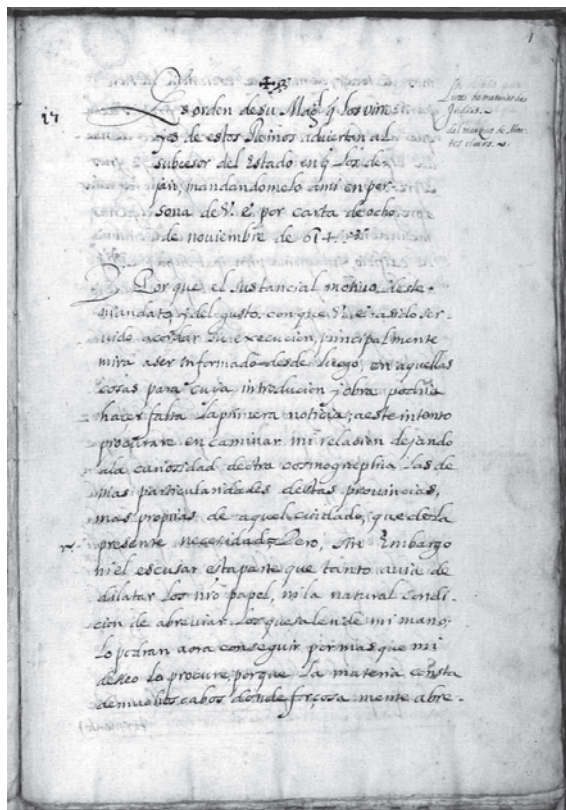 1
Luzes de materias de
Indias.
del marques de Mon-
tes claros.
17
Es orden de su Magd q los vire
yes de estos Reinos adviertan al
subcesor del Estado en q los de-
jan, mandandomelo ami en per-
sona de V. e. por carta de ocho
de noviembre de 614.
Porque el sustancial motivo deste
mandato, y del gusto con que V. e. a sido ser-
vido acordar su execucion, principalmente
mira a ser informado desde luego, en aquellas
cosas para cuya introducion y obra podria
hacer falta la primera noticia; a este intento
procurare en caminar mi relacion dejando
ala curiosidad de otra cosmographia las de
mas particularidades destas provincias,
mas proprias de aquel cuidado, que de la
presente necesidad. Pero, sin Embargo
ni el escusar esta parte que tanto avia de
dilatar los nro papel, ni la natural condi-
cion de abreviar los que salen de mi mano,
lo podran aora conseguir por mas que mi
deseo lo procure, porque la materia consta
de muchos cabos donde forçosa mente abre-